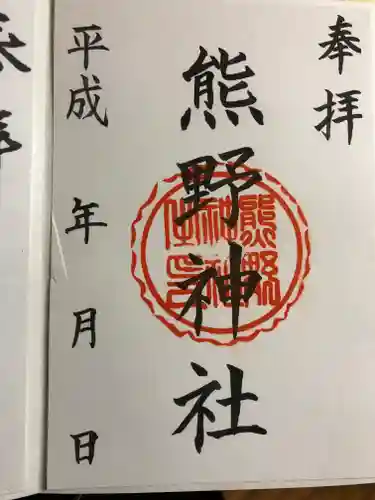 奉拝
熊野神社
熊野神社
平成 年 月 日